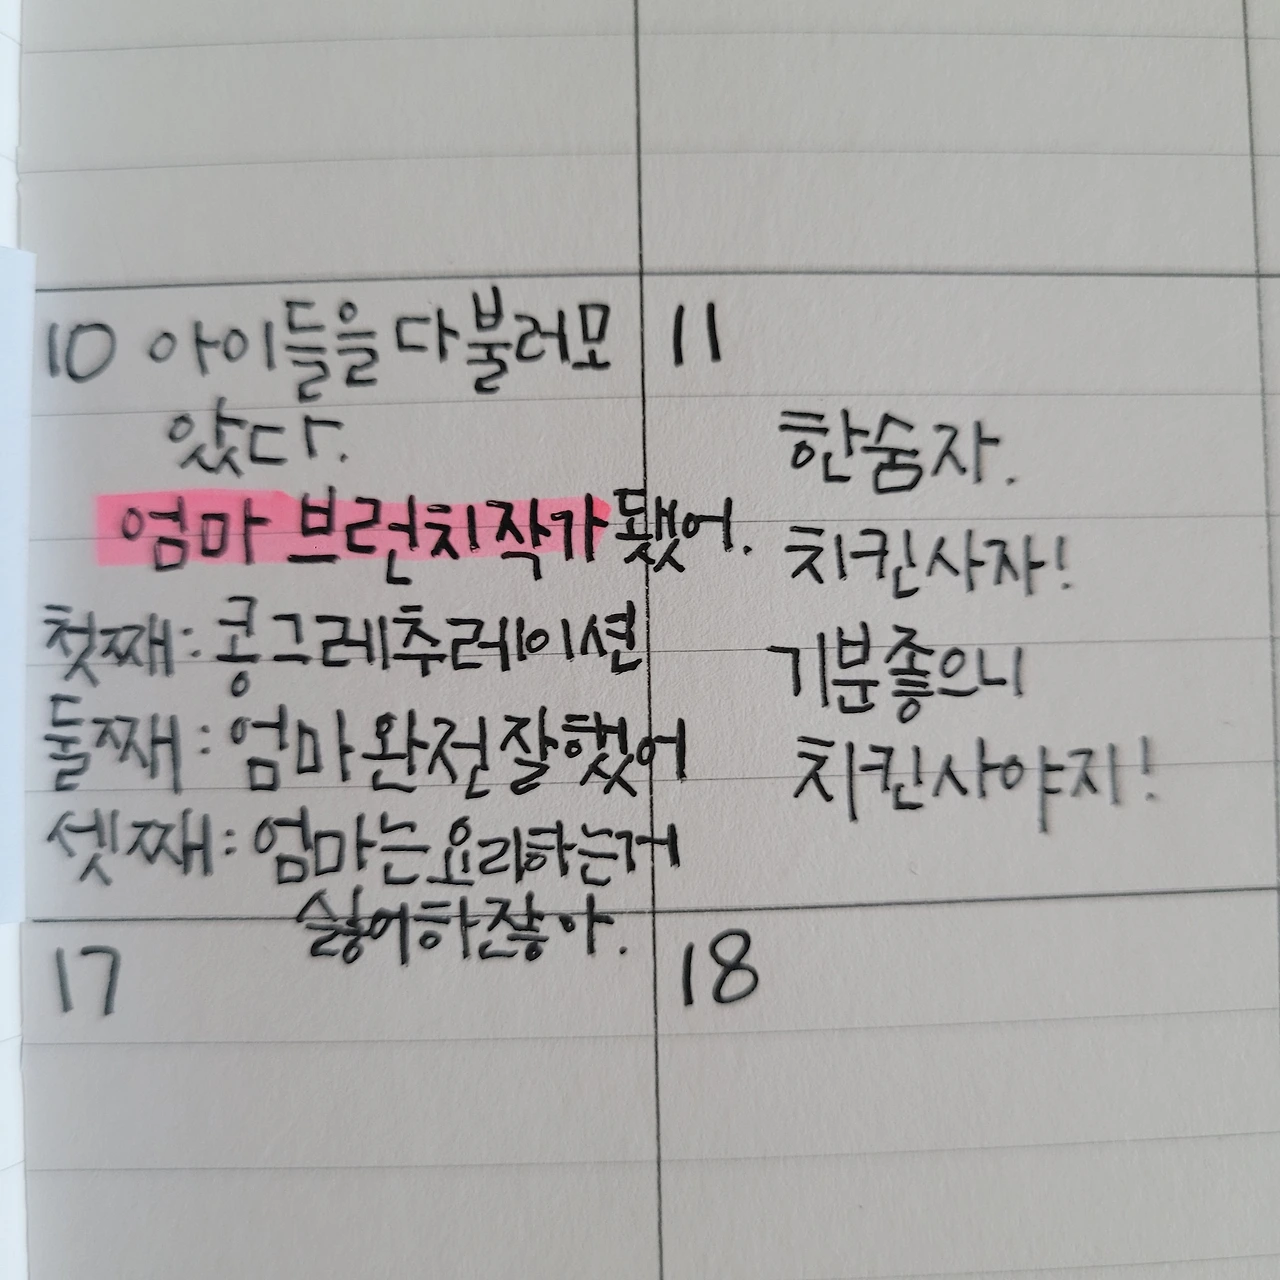 10 아이들을 다 불러모
았다.
엄마 브런치작가 됐어.
첫째: 콩그레츄레이션
둘째: 엄마 완전 잘했어
셋째: 엄마는 요리하는거
싫어하잖아.
11
한숨자.
치킨사자!
기분좋으니
치킨사야지!
17
18